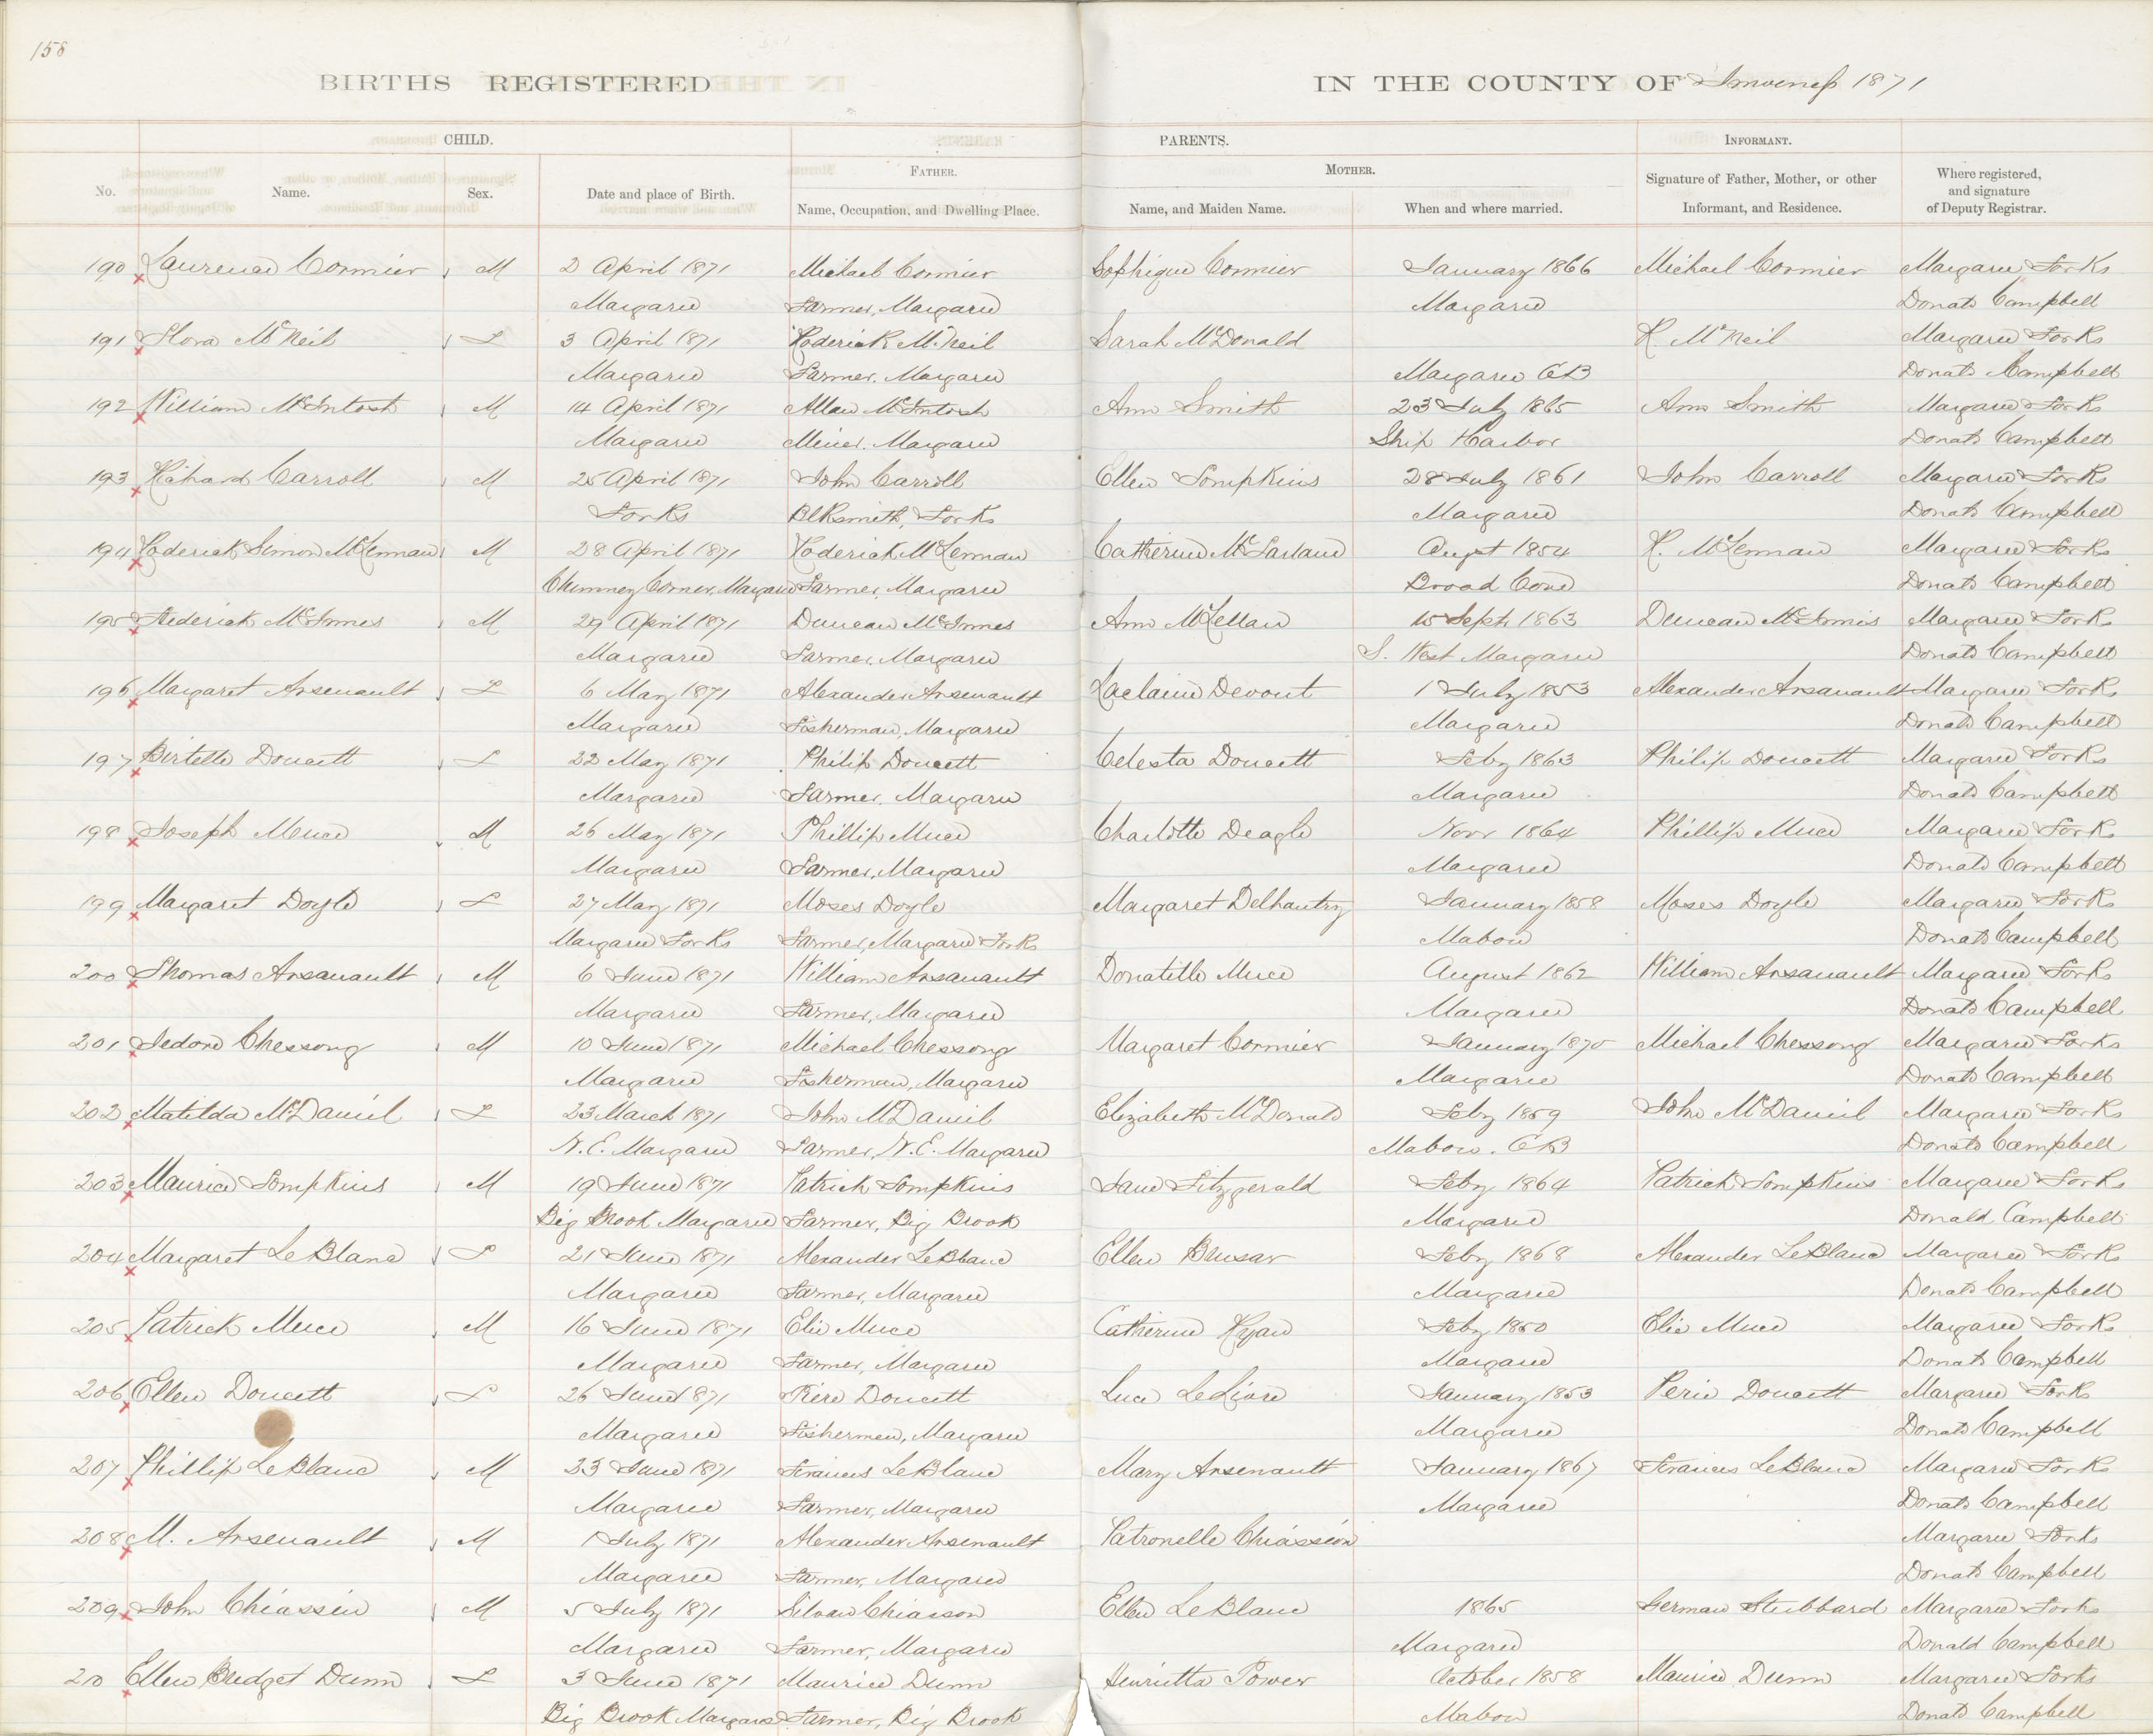 158
BIRTHS REGISTERED IN THE COUNTY OF Inverness 1871
CHILD. PARENTS. INFORMANT.
No. Name. Sex. Date and place of Birth. FATHER. Name, Occupation, and Dwelling Place. MOTHER. Name, and Maiden Name. When and where married. Signature of Father, Mother, or other Informant, and Residence. Where registered, and signature of Deputy Registrar.
190 Laurence Cormier M 2 April 1871 Michael Cormier Sophique Cormier January 1866 Michael Cormier Margaree Forks
Margaree Farmer, Margaree Margaree Donald Campbell
191 Flora McNeil F 3 April 1871 Roderick McNeil Sarah McDonald R. McNeil Margaree Forks
Margaree Farmer, Margaree Margaree CB Donald Campbell
192 William McIntosh M 14 April 1871 Allan McIntosh Ann Smith 23 July 1865 Ann Smith Margaree Forks
Margaree Miner, Margaree Ship Harbor Donald Campbell
193 Richard Carroll M 25 April 1871 John Carroll Ellen Tompkins 28 July 1861 John Carroll Margaree Forks
Forks Blksmith, Forks Margaree Donald Campbell
194 Roderick Simon McLennan M 28 April 1871 Roderick McLennan Catherine McFarlane August 1854 R. McLennan Margaree Forks
Chimney Corner, Margaree Farmer, Margaree Broad Cove Donald Campbell
195 Frederick McInnes M 29 April 1871 Duncan McInnes Ann McLellan 15 Sept 1863 Duncan McInnis Margaree Forks
Margaree Farmer, Margaree S. West Margaree Donald Campbell
196 Margaret Arsenault F 6 May 1871 Alexander Arsenault Laclaire Devout 1 July 1853 Alexander Arsanault Margaree Forks
Margaree Fisherman, Margaree Margaree Donald Campbell
197 Birtelle Doucett F 22 May 1871 Philip Doucett Celesta Doucett Feby 1863 Philip Doucett Margaree Forks
Margaree Farmer, Margaree Margaree Donald Campbell
198 Joseph Muce M 26 May 1871 Phillip Muce Charlotte Deagle Novr 1864 Phillip Muce Margaree Forks
Margaree Farmer, Margaree Margaree Donald Campbell
199 Margaret Doyle F 27 May 1871 Moses Doyle Margaret Delhantry January 1858 Moses Doyle Margaree Forks
Margaree Forks Farmer, Margaree Forks Mabou Donald Campbell
200 Thomas Arsanault M 6 June 1871 William Arsanault Donatille Muce August 1862 William Arsanault Margaree Forks
Margaree Farmer, Margaree Margaree Donald Campbell
201 Isedore Chessong M 10 June 1871 Michael Chessong Margaret Cormier January 1870 Michael Chessong Margaree Forks
Margaree Fisherman, Margaree Margaree Donald Campbell
202 Matilda McDaniel F 23 March 1871 John McDaniel Elizabeth McDonald Feby 1859 John McDaniel Margaree Forks
N.E. Margaree Farmer, N.E. Margaree Mabou. CB Donald Campbell
203 Maurice Tompkins M 19 June 1871 Patrick Tompkins Jane Fitzgerald Feby 1864 Patrick Tompkins Margaree Forks
Big Brook Margaree Farmer, Big Brook Margaree Donald Campbell
204 Margaret LeBlanc F 21 June 1871 Alexander LeBlanc Ellen Brusar Feby 1868 Alexander LeBlanc Margaree Forks
Margaree Farmer, Margaree Margaree Donald Campbell
205 Patrick Muce M 16 June 1871 Elie Muce Catherine Ryan Feby 1850 Elie Muce Margaree Forks
Margaree Farmer, Margaree Margaree Donald Campbell
206 Ellen Doucett F 26 June 1871 Piere Doucett Luce LeLiore January 1853 Perie Doucett Margaree Forks
Margaree Fishermen, Margaree Margaree Donald Campbell
207 Phillip LeBlanc M 23 June 1871 Francis LeBlanc Mary Arsenault January 1867 Francis LeBlanc Margaree Forks
Margaree Farmer, Margaree Margaree Donald Campbell
208 M. Arsenault M 1 July 1871 Alexander Arsenault Patronelle Chiassion Margaree Forks
Margaree Farmer, Margaree Donald Campbell
209 John Chiassin M 5 July 1871 Silvan Chiasson Ellen LeBlanc 1865 German Stubbard Margaree Forks
Margaree Farmer, Margaree Margaree Donald Campbell
210 Ellen Bridget Dunn F 3 June 1871 Maurice Dunn Henrietta Power October 1858 Maurice Dunn Margaree Forks
Big Brook Margaree Farmer, Big Brook Mabou Donald Campbell